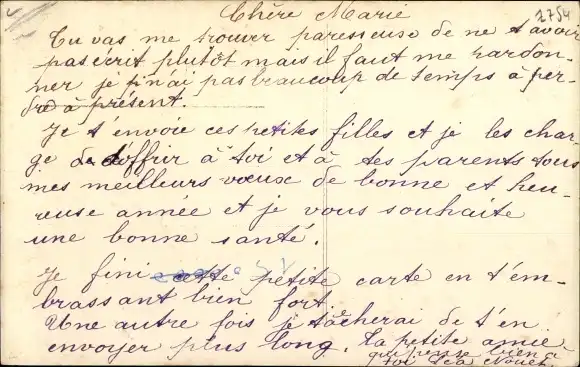 Chère Marie 2754
Tu vas me trouver paresseuse de ne t avoir
pas écrit plutôt mais il faut me pardon-
ner je n'ai pas beaucoup de temps à per-
dre à présent.
Je t'envoie ces petites filles et je les char-
ge d'offrir à toi et à tes parents tous
mes meilleurs vœux de bonne et heu-
reuse année et je vous souhaite
une bonne santé.
Je fini cette petite carte en t'em-
brassant bien fort.
Une autre fois je tâcherai de t'en
envoyer plus long. Ta petite amie
qui pense bien à
toi Léa